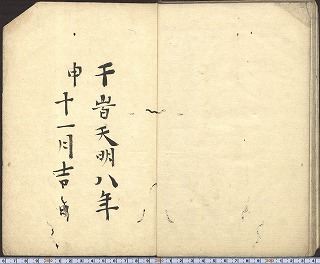 干峕天明八年
申十一月吉日